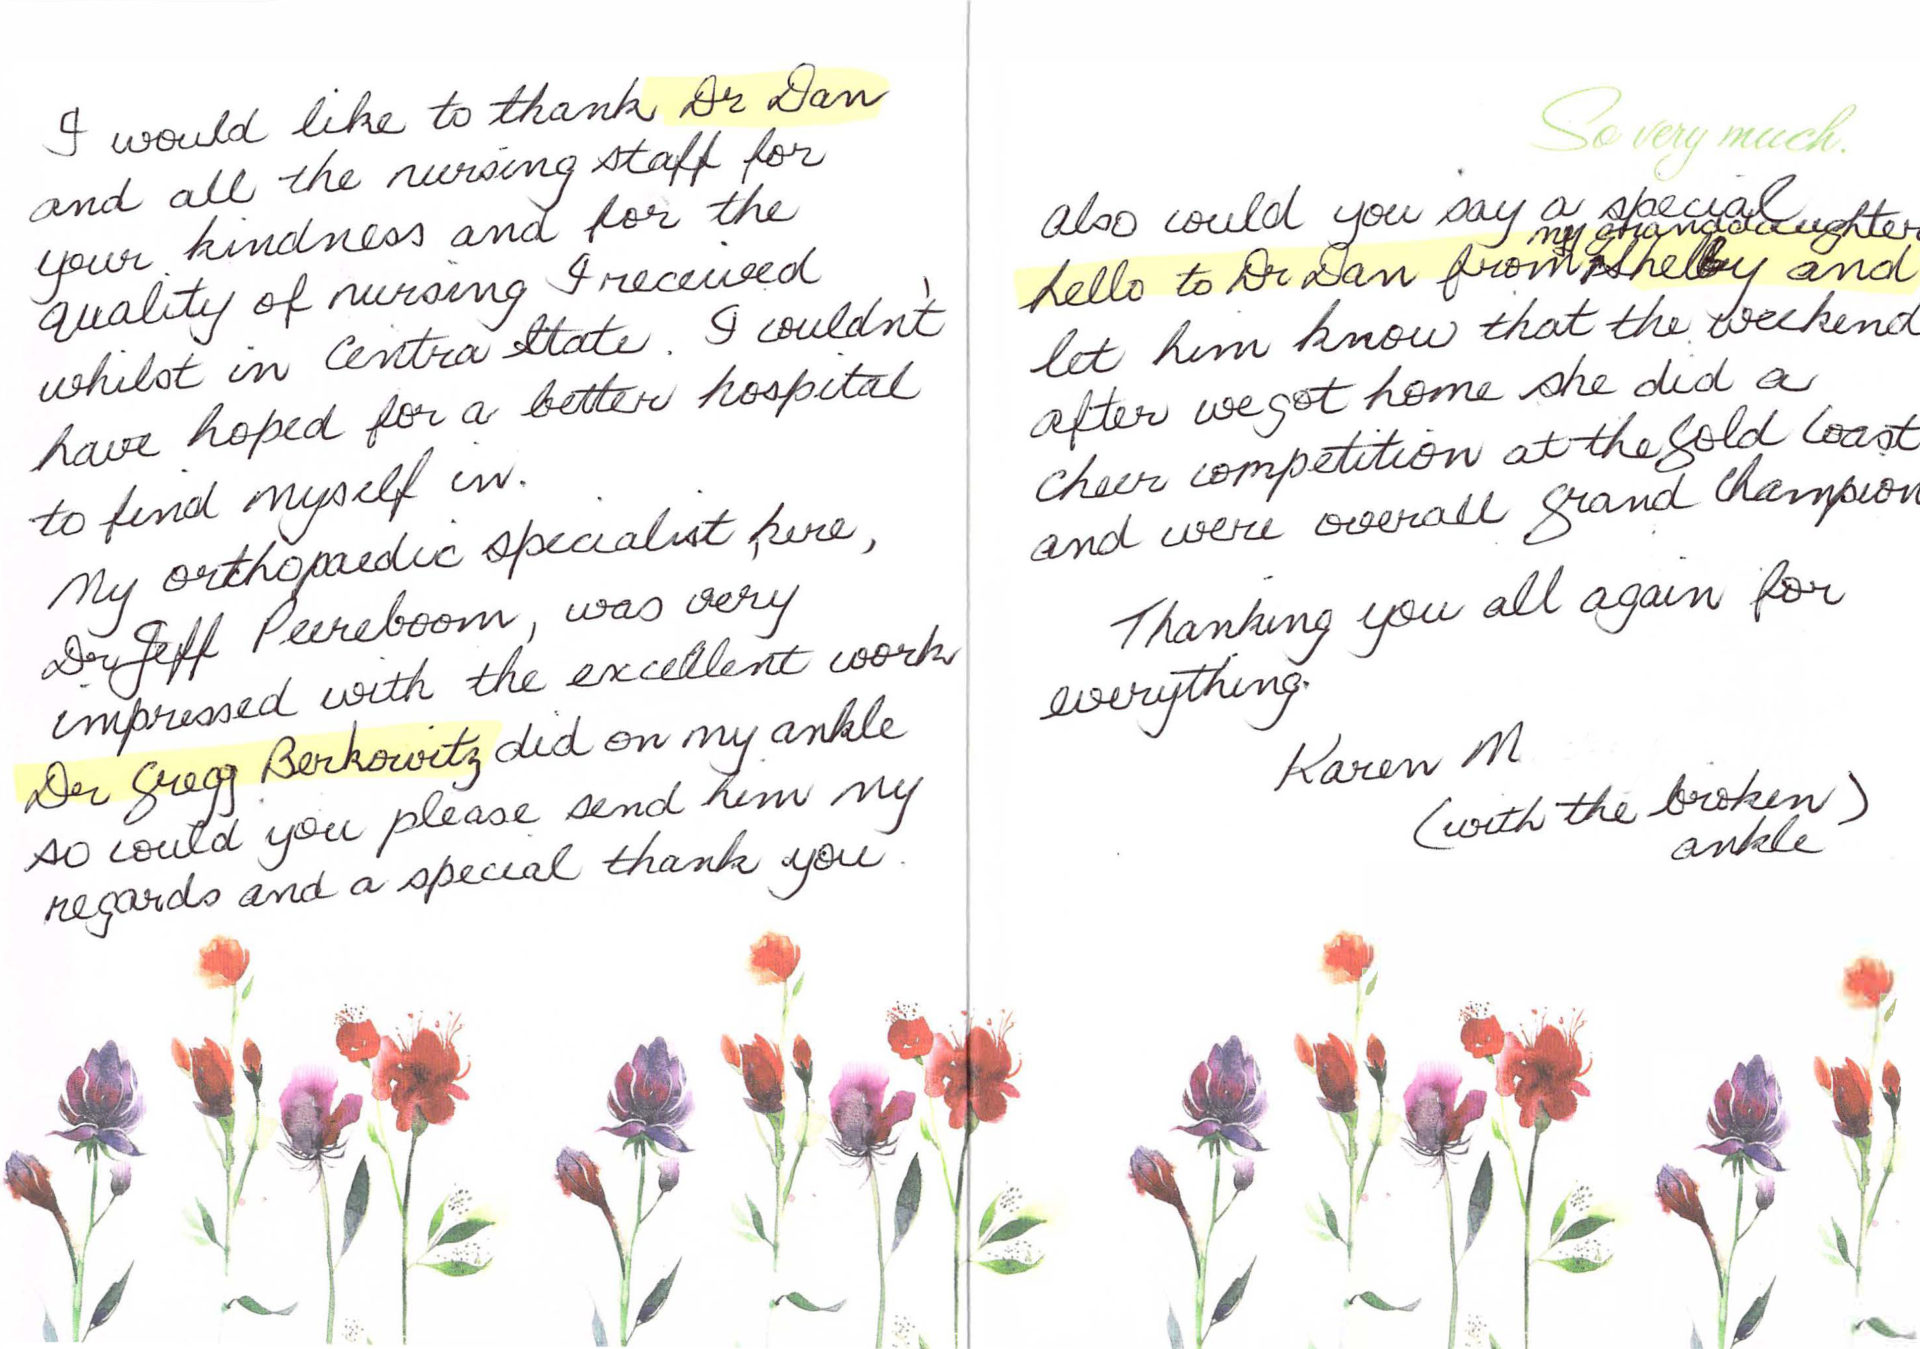 I would like to thank Dr Dan
and all the nursing staff for
your kindness and for the
quality of nursing I received
whilst in Centra State. I couldn't
have hoped for a better hospital
to find myself in.
My orthopaedic specialist here,
Dr Jeff Peereboom, was very
impressed with the excellent work
Dr Gregg Berkowitz did on my ankle
so could you please send him my
regards and a special thank you.
So very much.
also could you say a special
my granddaughter
hello to Dr Dan from Shelby and
let him know that the weekend
after we got home she did a
cheer competition at the Gold Coast
and were overall Grand Champion
Thanking you all again for
everything.
Karen M
(with the broken)
ankle